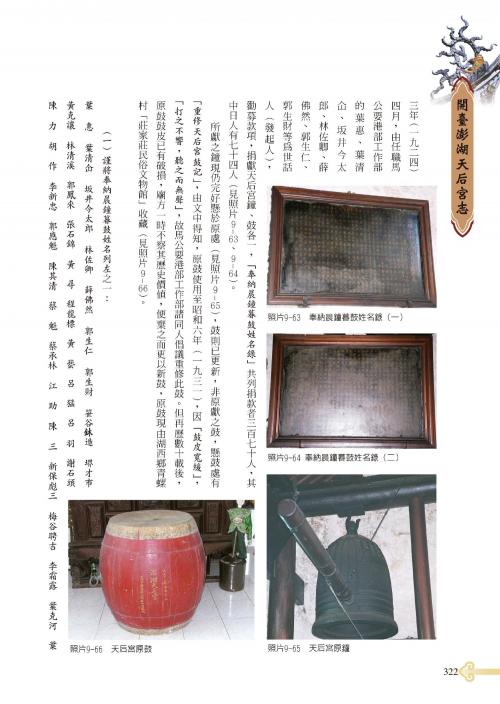 開臺澎湖天后宮志
三年(一九二四)
四月,由任職馬
公要港部工作部
的葉惠、葉清
㕣、坂井今太
郎、林佐卿、薛
佛然、郭生仁、
郭生財等爲世話
人(發起人),
勸募款項,捐獻天后宮鐘、鼓各一,「奉納晨鐘暮鼓姓名錄」共列捐款者三百七十人,其
中日人有七十四人(見照片9-63、9-64)。
所獻之鐘現仍完好懸於原處(見照片9-65),鼓則已更新,非原獻之鼓,懸鼓處有
「重修天后宮鼓記」,由文中得知,原鼓使用至昭和六年(一九三一),因「鼓皮寬緩」,
「打之不響,聽之而無聲」,故馬公要港部工作部諸同人倡議重修此鼓。但再歷數十載後,
原鼓鼓皮已有破損,廟方一時不察其歷史價值,便棄之而更以新鼓,原鼓現由湖西鄉青螺
村「莊家莊民俗文物館」收藏(見照片9-66)。
(一)謹將奉納晨鐘暮鼓姓名列左之一:
葉 息 葉清㕣 坂井今太郎 林佐卿 薛佛然 郭生仁 郭生財 笹谷銖造 堺才市
黃克讓 林清溪 郭鳳來 張石錦 黃 尋 程龍標 黃 藝 呂 猛 呂 羽 謝石頭
陳 力 胡 作 李新忠 郭應魁 陳其清 蔡 魁 蔡承林 江 助 陳 三 新保彪三 梅谷聘吉 李霜露 葉克河 葉
照片9-63 奉納晨鐘暮鼓姓名錄(一)
照片9-64 奉納晨鐘暮鼓姓名錄(二)
照片9-65 天后宮原鐘
照片9-66 天后宮原鼓
322